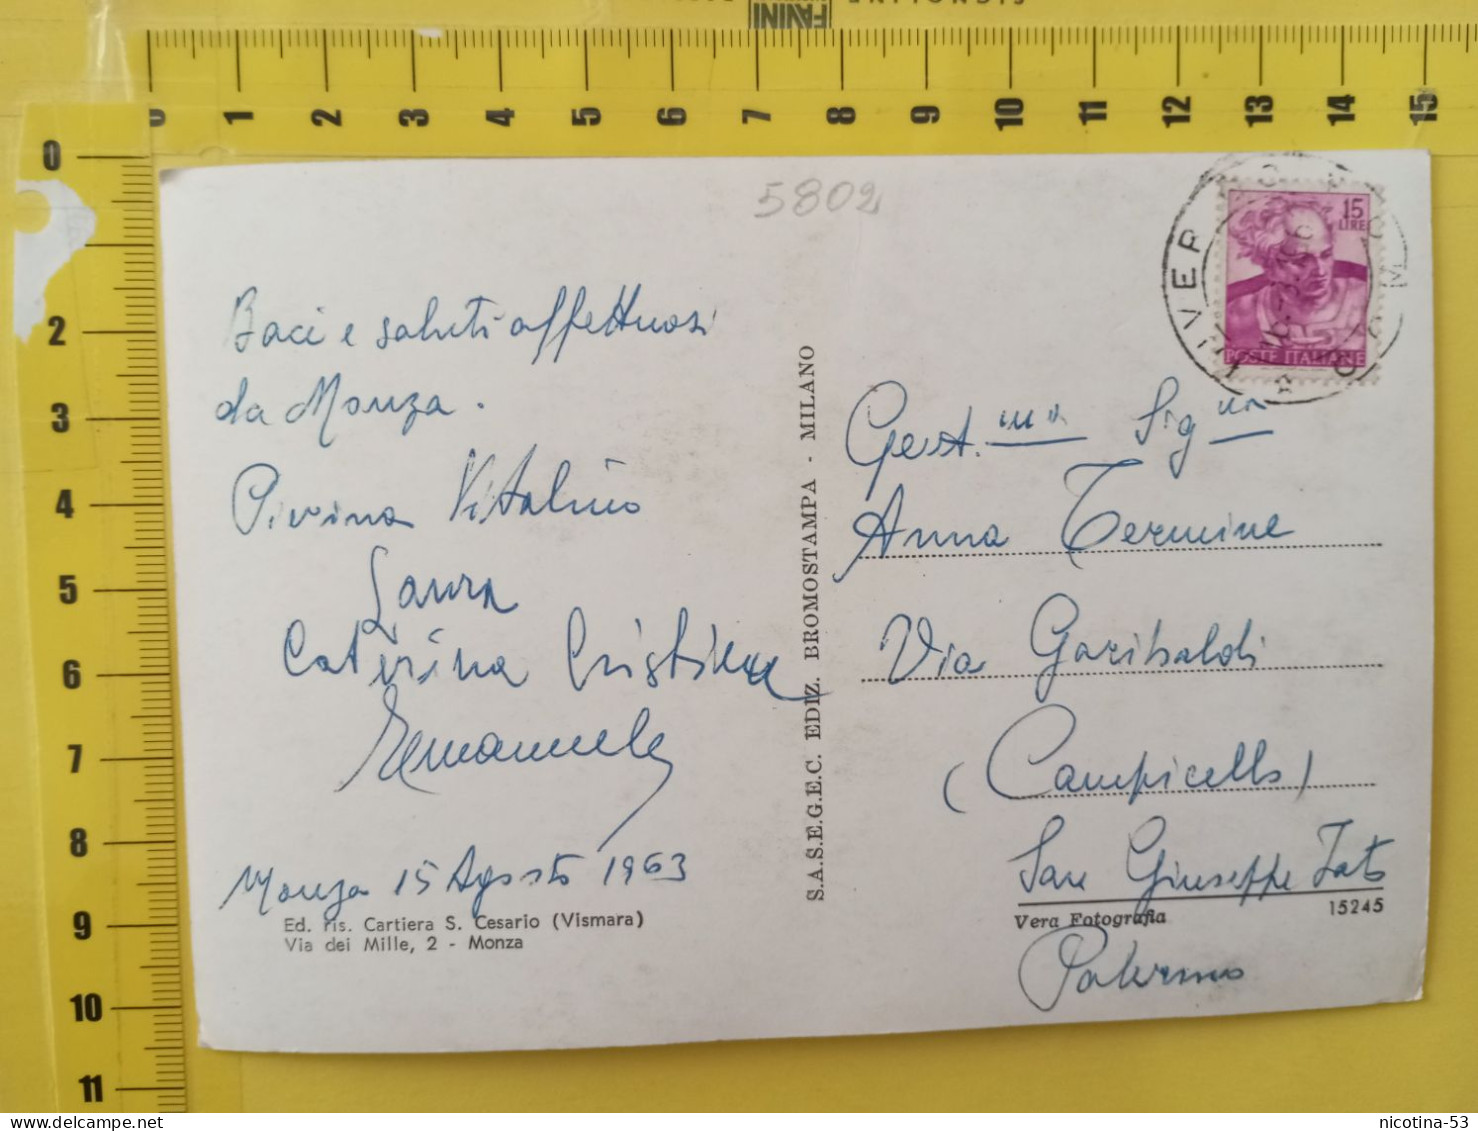 FAVINI
0 1 2 3 4 5 6 7 8 9 10 11 12 13 14 15
0
2
3
4
5
6
7
8
9
10
11
5802
15
LIRE
POSTE ITALIANE
Baci e saluti affettuosi
da Monza.
Pierina Vitalino
Laura
Caterina Cristina
Emanuele
Monza 15 Agosto 1963
Ed. ris. Cartiera S. Cesario (Vismara)
Via dei Mille, 2 - Monza
S.A.S.E.G.E.C. EDIZ. BROMOSTAMPA - MILANO
Gent.ma Sig.ra
Anna Termine
Via Garibaldi
(Campicello)
San Giuseppe Jato
Vera Fotografia 15245
Palermo
nicotina-53